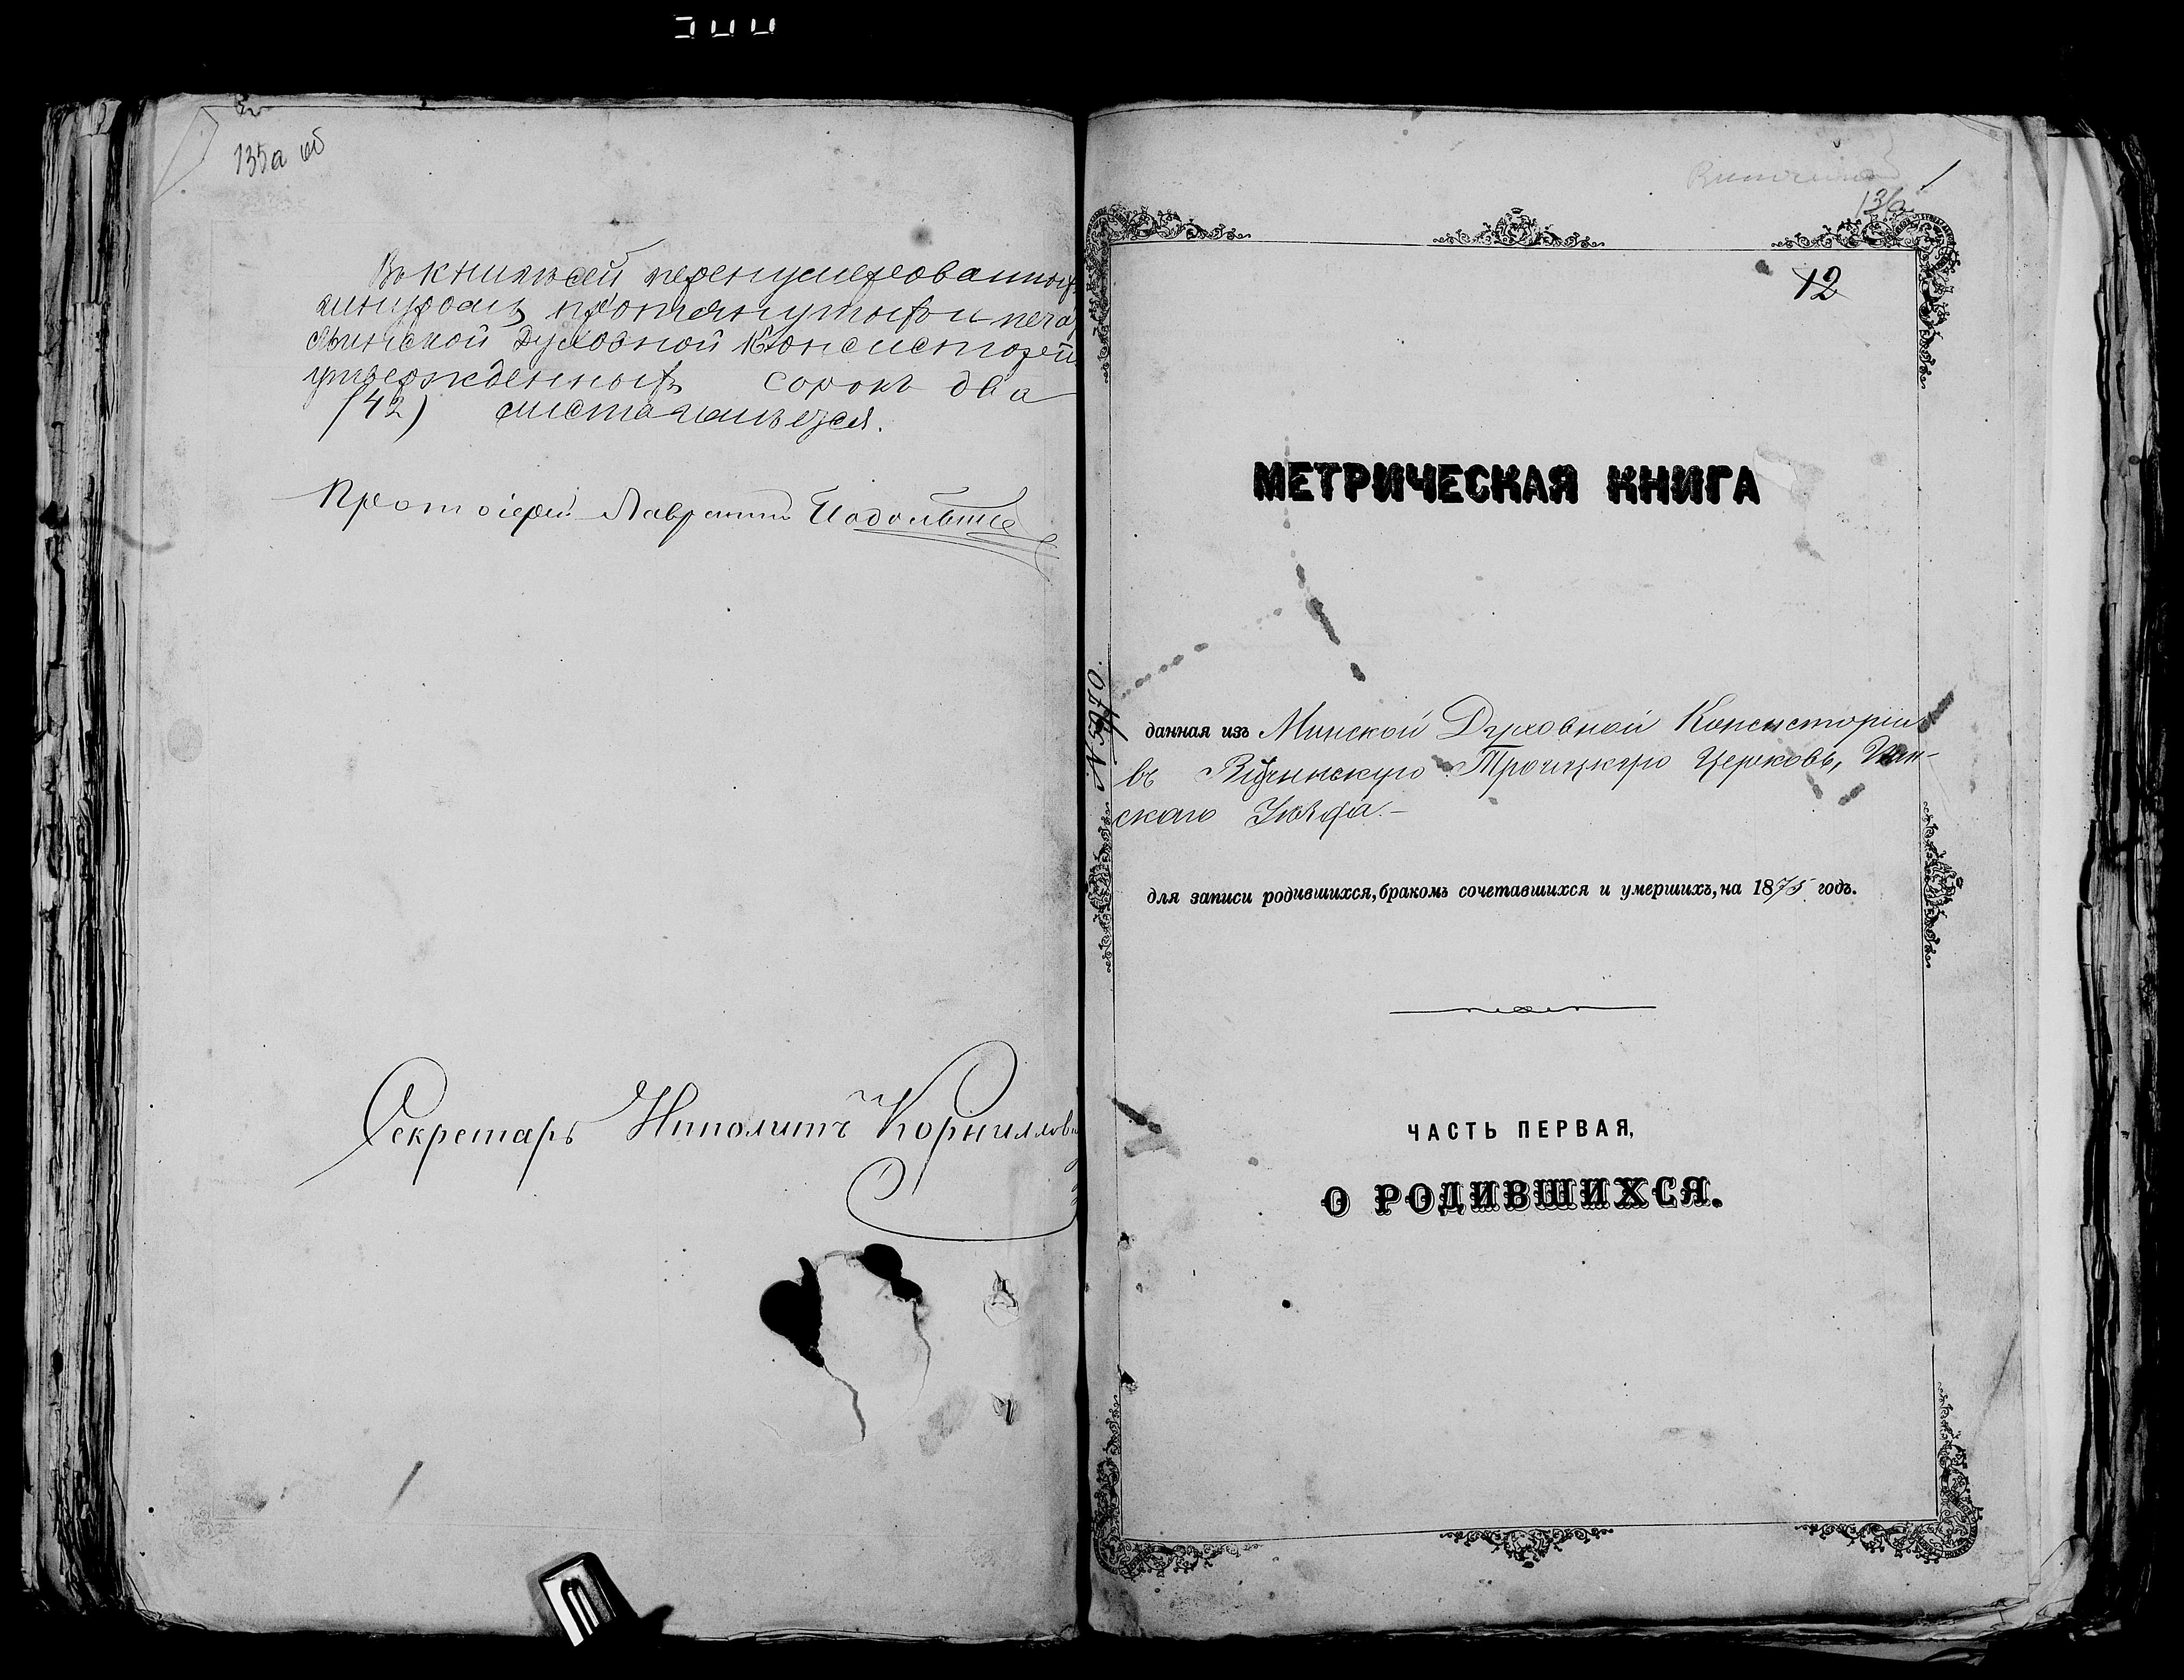 135а об
Въ книгѣ сей перенумерованныхъ
шнуромъ протянутыхъ и печа
Минской Духовной Консисторіи
утвержденныхъ сорокъ два
(42) листа имѣется.
Протоіерей Лаврентій
Секретарь Ипполитъ Корнилов
1
136а
12
МЕТРИЧЕСКАЯ КНИГА
№ 5970.
данная изъ Минской Духовной Консисторіи
въ Троицкую Церковь, Пин-
скаго Уѣзда.—
для записи родившихся, бракомъ сочетавшихся и умершихъ, на 1875 годъ.
ЧАСТЬ ПЕРВАЯ,
О РОДИВШИХСЯ.